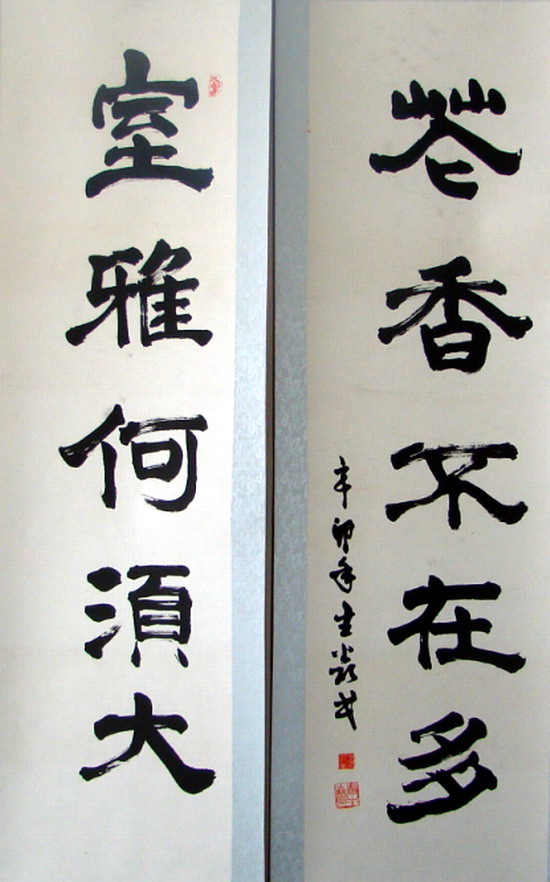 室雅何湏大
花香不在多
辛卯年